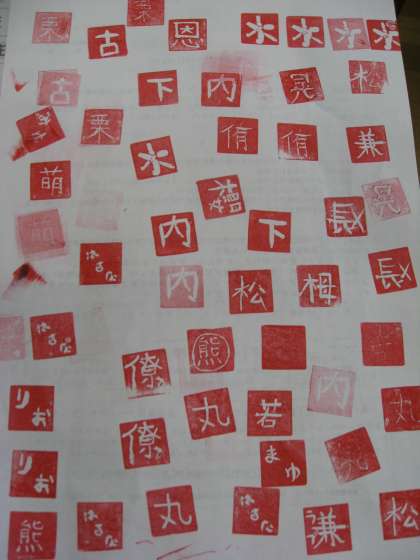 栗 栗
古 恩 水 水 水 水
古 下 内 晃 松
栗 侑 侑 兼
水
萌 櫻 長 晃
萌 内 下
はるな
内 松 栂 長
はるな 熊
僚 内
りお 丸 若 丸
僚
りお まゆ 丸
熊 はるな 丸 はるな 謙 松